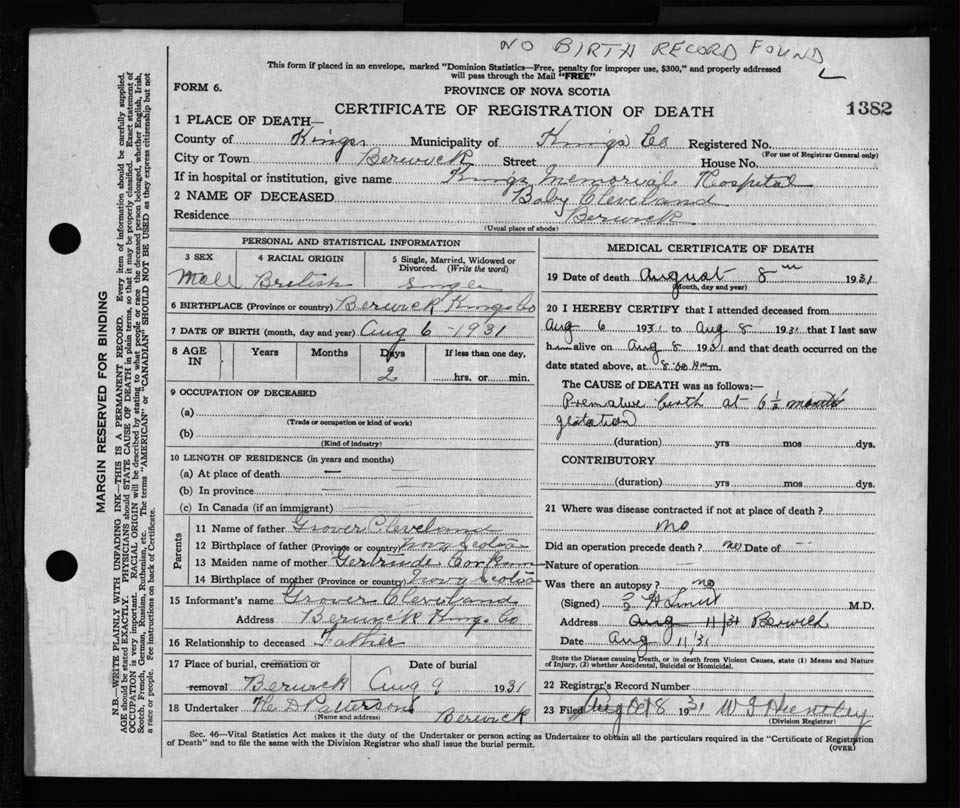 NO BIRTH RECORD FOUND
This form if placed in an envelope, marked "Dominion Statistics—Free, penalty for improper use, $300," and properly addressed
will pass through the Mail "FREE"
FORM 6.
PROVINCE OF NOVA SCOTIA
CERTIFICATE OF REGISTRATION OF DEATH
1382
1 PLACE OF DEATH—
County of Kings Municipality of Kings Co Registered No.
(For use of Registrar General only)
City or Town Berwick Street House No.
If in hospital or institution, give name Kings Memorial Hospital
2 NAME OF DECEASED Baby Cleveland
Residence Berwick
(Usual place of abode)
MARGIN RESERVED FOR BINDING
N.B.—WRITE PLAINLY WITH UNFADING INK—THIS IS A PERMANENT RECORD. Every item of information should be carefully supplied.
AGE should be stated EXACTLY. PHYSICIANS should STATE CAUSE OF DEATH in plain terms, so that it may be properly classified. Exact statement of
OCCUPATION is very important. RACIAL ORIGIN will be described by stating to what people or race the deceased person belonged, whether English, Irish,
Scotch, French, German, Russian, Ruthenian, etc. The terms "AMERICAN" or "CANADIAN" SHOULD NOT BE USED as they express citizenship but not
a race or people. See instructions on back of Certificate.
PERSONAL AND STATISTICAL INFORMATION
3 SEX
4 RACIAL ORIGIN
5 Single, Married, Widowed or
Divorced. (Write the word)
Male British Single
6 BIRTHPLACE (Province or country) Berwick Kings Co
7 DATE OF BIRTH (month, day and year) Aug 6 - 1931
8 AGE
IN
Years Months Days If less than one day,
2 hrs. or min.
9 OCCUPATION OF DECEASED
(a)
(Trade or occupation or kind of work)
(b)
(Kind of industry)
10 LENGTH OF RESIDENCE (in years and months)
(a) At place of death —
(b) In province —
(c) In Canada (if an immigrant) —
Parents
11 Name of father Grover Cleveland
12 Birthplace of father (Province or country) Nova Scotia
13 Maiden name of mother Gertrude Corkum
14 Birthplace of mother (Province or country) Nova Scotia
15 Informant's name Grover Cleveland
Address Berwick Kings Co
16 Relationship to deceased Father
17 Place of burial, cremation or
removal Berwick
Date of burial
Aug 9 1931
18 Undertaker D Patterson
(Name and address) Berwick
MEDICAL CERTIFICATE OF DEATH
19 Date of death August 8th 1931
(Month, day and year)
20 I HEREBY CERTIFY that I attended deceased from
Aug 6 1931 to Aug 8 1931 that I last saw
him alive on Aug 8 1931 and that death occurred on the
date stated above, at m.
The CAUSE of DEATH was as follows:—
Premature birth at 6½ months
gestation
(duration) yrs mos dys.
CONTRIBUTORY
(duration) yrs mos dys.
21 Where was disease contracted if not at place of death?
no
Did an operation precede death? no Date of —
Nature of operation —
Was there an autopsy? no
(Signed) M.D.
Address Aug 11/31 Berwick
Date Aug 11/31
State the Disease causing Death, or in death from Violent Causes, state (1) Means and Nature
of Injury, (2) whether Accidental, Suicidal or Homicidal.
22 Registrar's Record Number
23 Filed 1931
(Division Registrar)
Sec. 46—Vital Statistics Act makes it the duty of the Undertaker or person acting as Undertaker to obtain all the particulars required in the "Certificate of Registration
of Death" and to file the same with the Division Registrar who shall issue the burial permit.
(OVER)